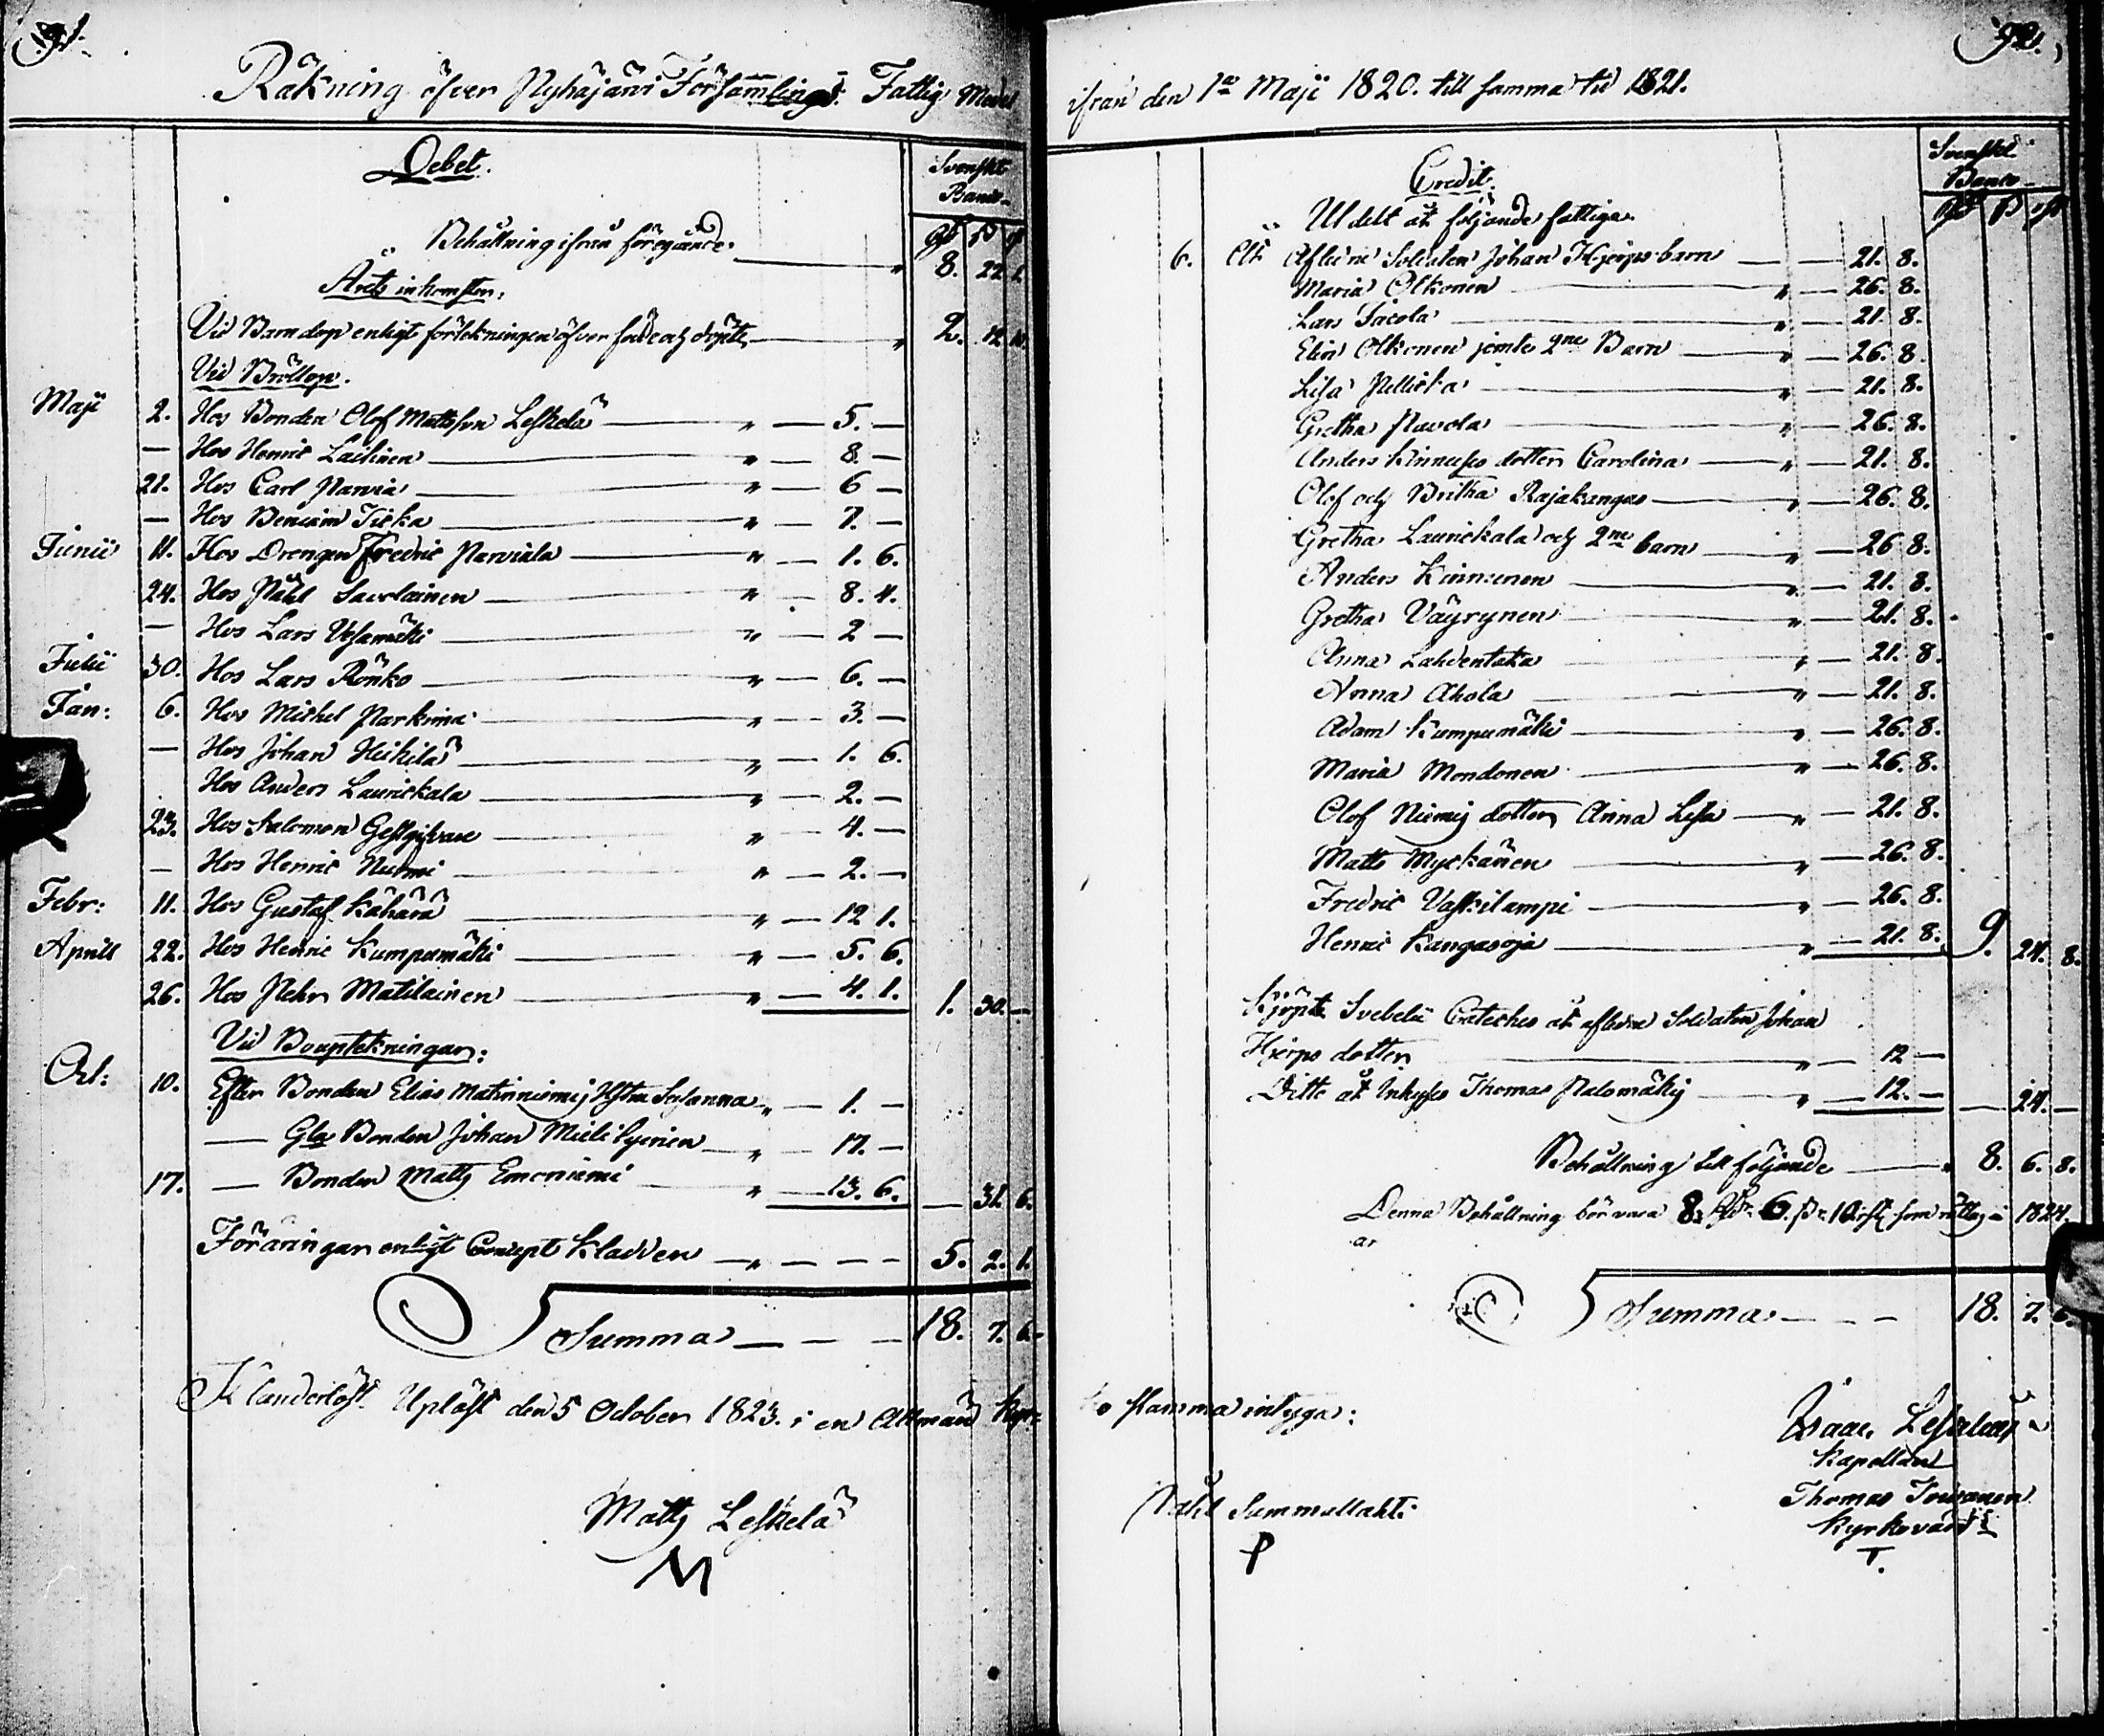 91.
Räkning öfver Pyhäjärvi Församlings Fattig Medel
Debet.
Svenskt
Banco
Behållning ifrån föregående " 8. 22. 1.
Årets inkomster:
Vid Barndop enligt förtekningen öfver födde och döpte " 2. 12.
Vid Bröllop.
Maji 2. Hos Bonden Olof Mattsson Leskelä " — 5. —
— Hos Henric Laitinen " — 8. —
21. Hos Carl Parvia " — 6 —
— Hos Beniam Ticka " — 7. —
Junii 11. Hos Drengen Fredric Parviala " — 1. 6.
24. Hos Påhl Savolainen " — 8. 4.
— Hos Lars Vesamäki " — 2 —
Julii 30. Hos Lars Rönkö " — 6. —
Jan: 6. Hos Michel Parkima " — 3. —
— Hos Johan Heikilä " — 1. 6.
Hos Anders Laurickala " — 2. —
23. Hos Salomon Gestgifvare " — 4. —
— Hos Henric Nurmi " — 2. —
Febr: 11. Hos Gustaf Kähärä " — 12 1.
Aprill 22. Hos Henric Kumpumäki " — 5. 6.
26. Hos Pehr Matilainen " — 4. 1. 1. 30. —
Vid Bouptekningar:
Oct: 10. Efter Bonden Elias Matinniemij Hstru Susanna " — 1. —
— Gla Bonden Johan Mielikäinen " — 17. —
17. — Bonden Matts Emoniemi " — 13. 6. — 31. 6.
Föräringar enligt Concept Kladden " — — — 5. 2. 1.
Summa — — — 18. 7. 6.
Klanderlöst Upläst den 5 October 1823. i en Allmän Kyr=
Matts Leskelä
M
92.
ifrån den 1a Maji 1820. till samma tid 1821.
Credit.
Svenskt
Banco
Utdelt åt följande fattiga
6. Åt Aflidne Soldaten Johan Hjerps barn — — 21. 8.
Maria Olkonen " — 26. 8.
Lars Jacola " — 21. 8.
Elin Olkonen jemte 2ne Barn " — 26. 8.
Lisa Pellicka " — 21. 8.
Gretha Pavola " — 26. 8.
Anders Kinnuses dotter Carolina " — 21. 8.
Olof och Britha Rajakangas " — 26. 8.
Gretha Laurickala och 2ne barn " — 26 8.
Anders Kinnunen " — 21. 8.
Gretha Väyrynen " — 21. 8.
Anna Lahdentaka " — 21. 8.
Anna Ahola " — 21. 8.
Adam Kumpumäki " — 26. 8.
Maria Mondonen " — 26. 8.
Olof Niemij dotter Anna Lisa " — 21. 8.
Matts Myckänen " — 26. 8.
Fredric Vaskilampi " — 26. 8.
Henric Kangasoja " — 21. 8. 9. 24. 8.
Kjöpte Svebelii Cateches åt aflidne Soldaten Johan
Hjerps dotter " — 12 —
Ditto åt Inhyses Thomas Palomäkij " — 12. — — 24. —
Behållning till följande " 8. 6. 8.
Denna Behållning bör vara 8 6 10 som rättas i 1824.
år
Summa — — — 18. 7. 6.
ko stamma intygar:
Isaac
Kapellan
Påhl Lammallahti
P
Thomas Toivanen
Kyrkovärd
T.